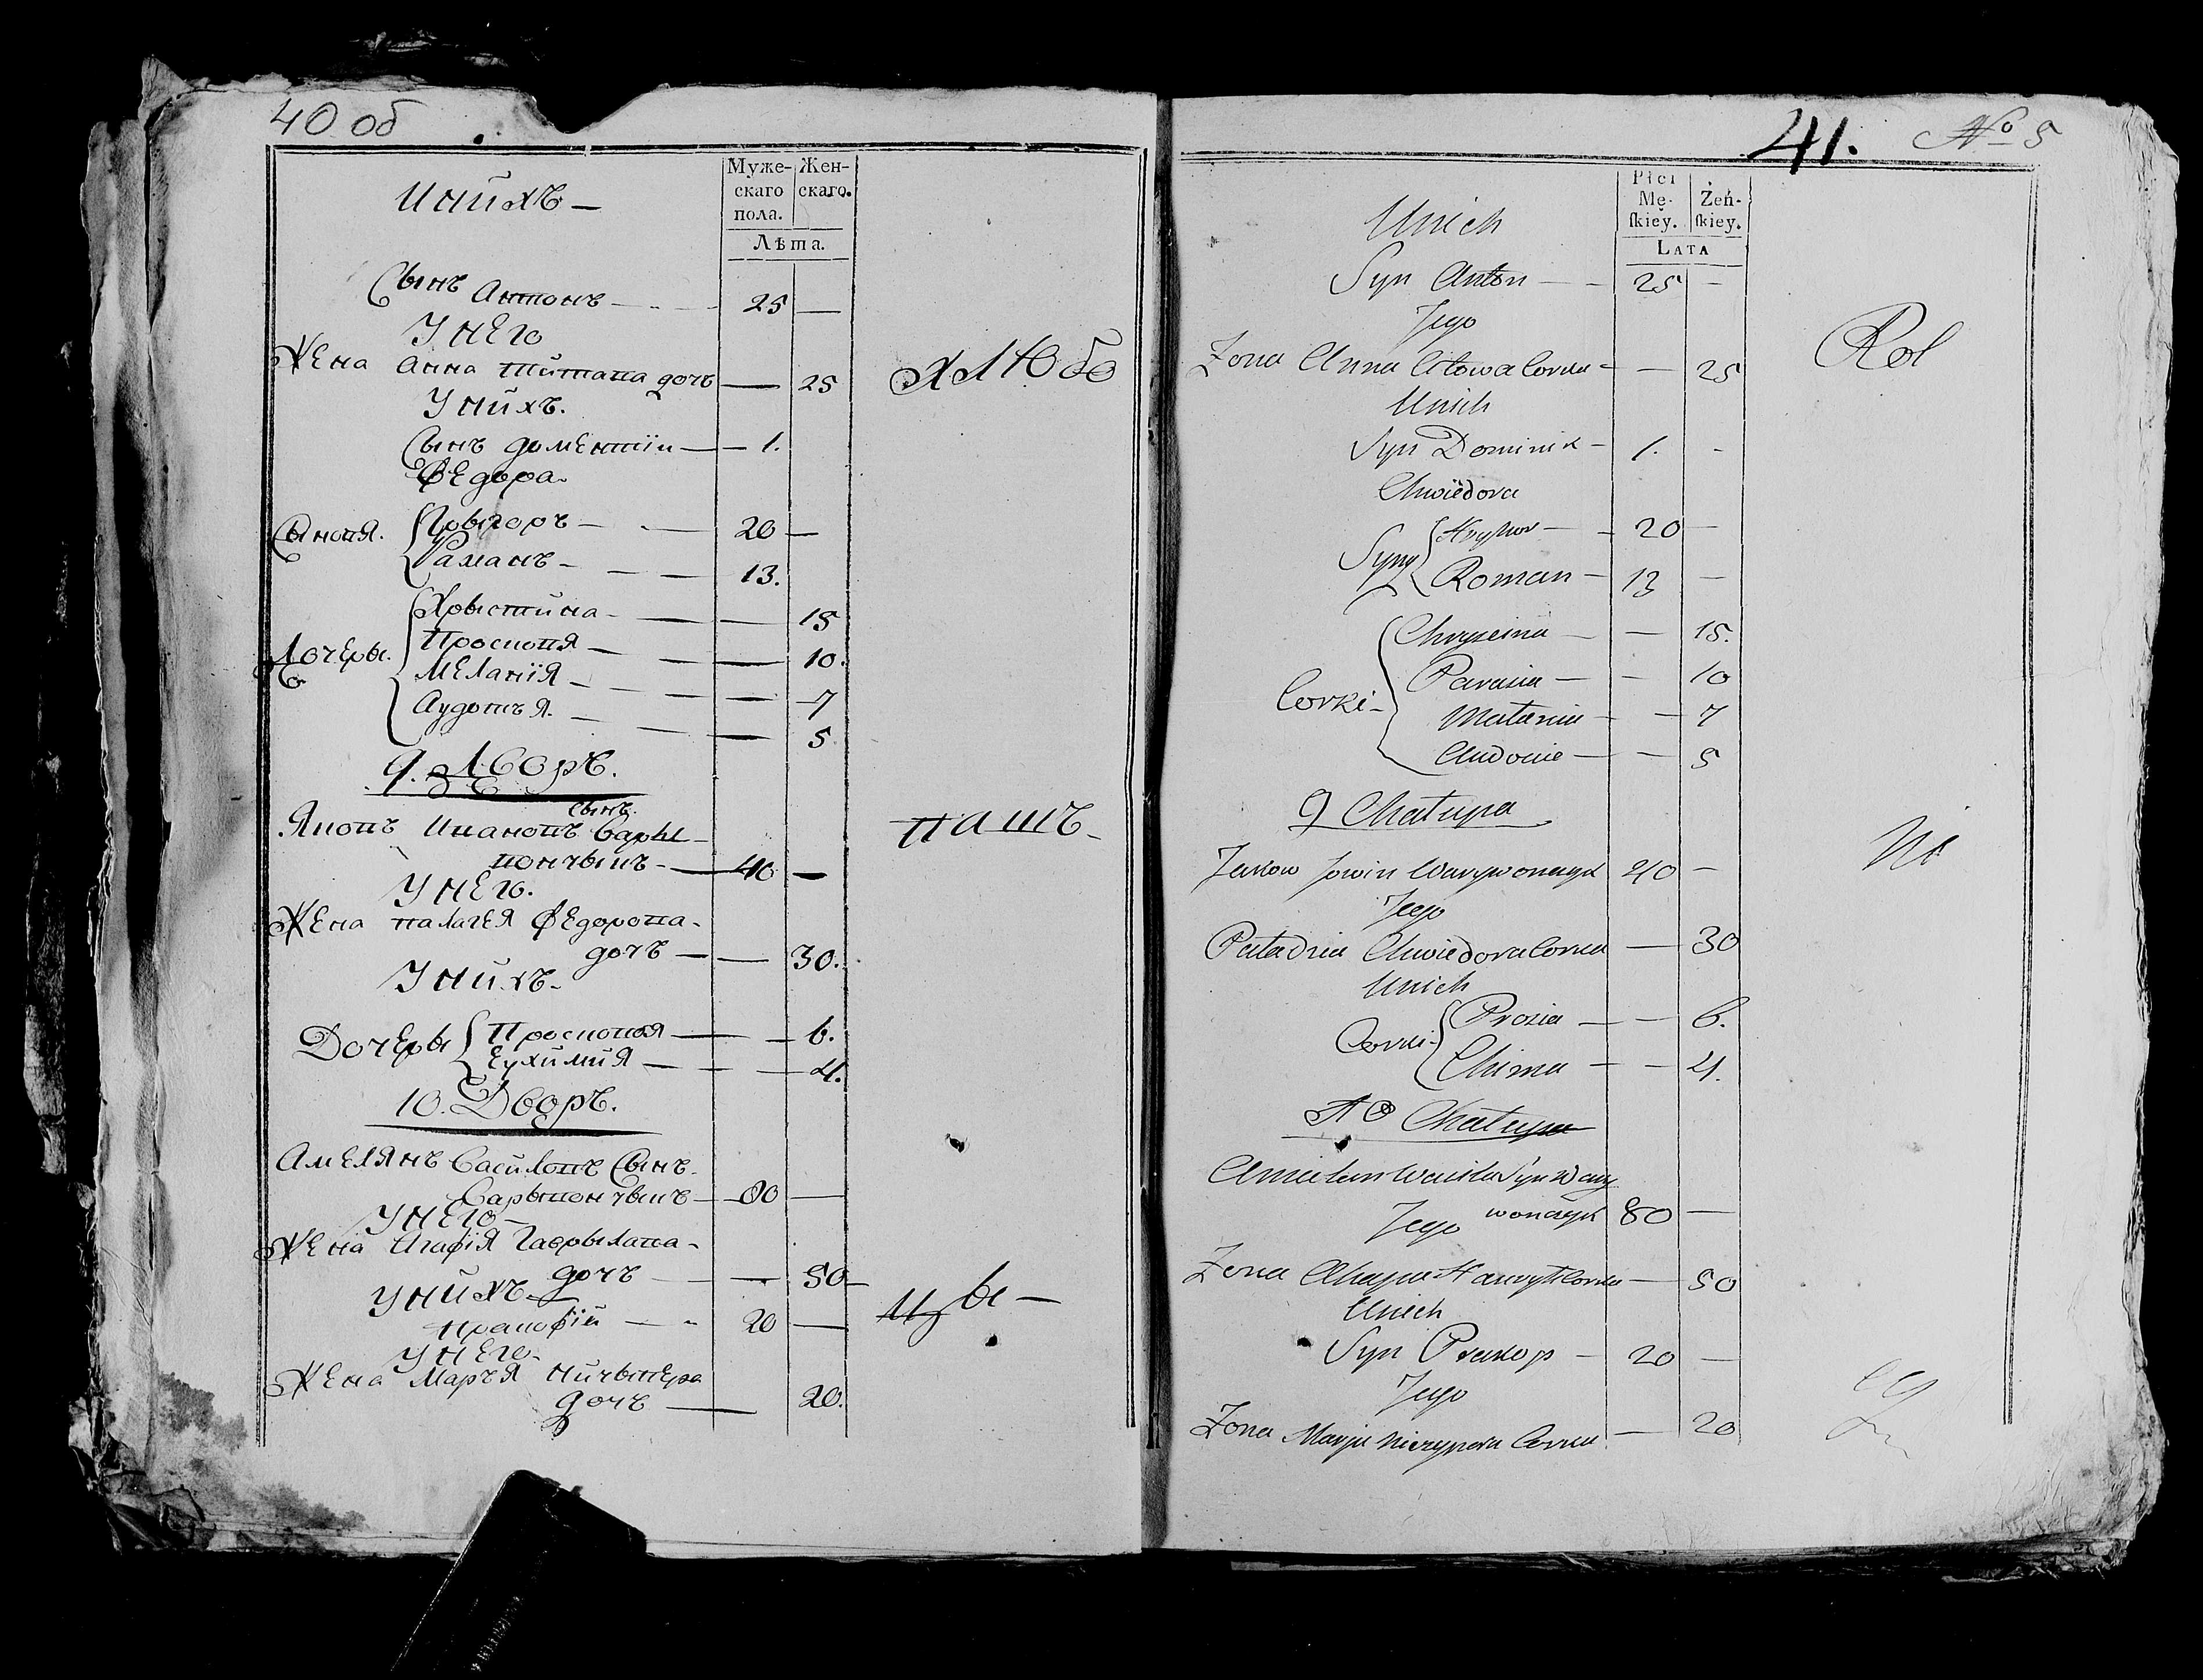 40 об
Муже-
скаго
пола.
Жен-
скаго.
Лѣта.
Инйхъ —
Сынъ Антонъ — 25 —
У него
Жена Анна Тйтапа дочъ — 25
У нйхъ.
Сынъ доментıй — 1.
Федора.
Сынопя. Грыгоръ — 20 —
Раманъ — 13.
Дочеры. Хрыстйна — 15
Проскопя — 10.
Меланıя — 7
Аудотъя. — 5
9. Дворъ.
Якопъ Ипанопъ сынъ Вары-
пончыкъ — 40 —
У него.
Жена палагея Федоропа-
дочъ — 30.
У нйхъ.
Дочеры Проскопя — 6.
Еухймйя — 4.
10. Дворъ.
Амелянъ Васйлопъ Сынъ.
Варыпончыкъ — 80 —
У него —
Жена Агафıя Гаврылапа-
дочъ — 50 —
У нйхъ
Пракофıй — 20 —
У него-
Жена Маръя Нйчыпера
дочъ — 20.
хлѣбо
пашъ-
цы —
41. No 5
Płci
Mę-
skiey.
Żeń-
skiey.
Lata
Unich
Syn Anton — 25 —
Jego
Zona Anna Citowa Corka — 25
Unich
Syn Dominik — 1. -
Chwiedora
Syny Hryhor — 20 —
Roman — 13 —
Corki Chryscina — 15.
Parasia — 10
Małania — 7
Audocie — 5
9 Chałupa
Jakow Jowin Warywonczyk 40 —
Jego
Chwiedora Corka — 30
Unich
Corki Prosia — 6.
Chima — 4.
10 Chałupa
Amielan Wasila Syn Wary
wonczyk 80 —
Jego
Zona Ahapa Hawryłi Corka — 50
Unich
Syn Prakop — 20 —
Jego
Zona Marja Niczypora Corka — 20
Rol
Ni
cy